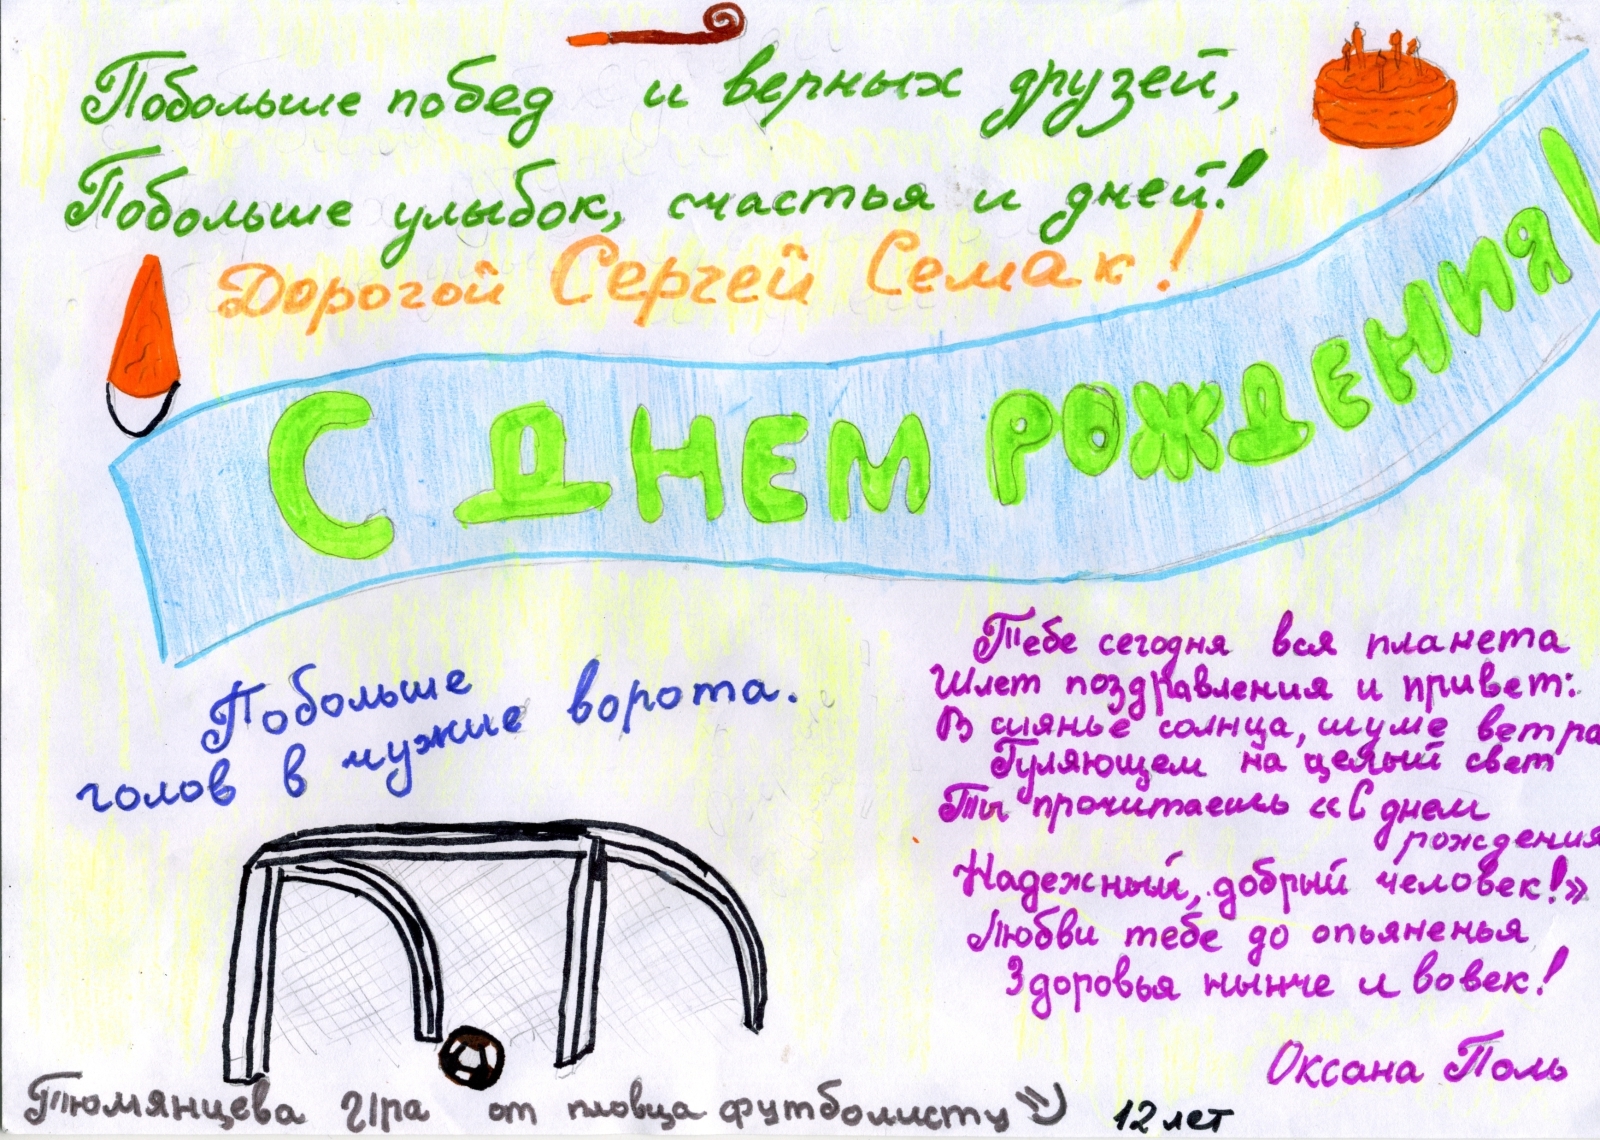 Побольше побед и верных друзей,
Побольше улыбок, счастья и дней!
Дорогой Сергей Семак!
С ДНЕМ РОЖДЕНИЯ!
Побольше
голов в чужие ворота.
Тебе сегодня вся планета
Шлет поздравления и привет:
В сиянье солнца, шуме ветра
Гуляющем на целый свет
Ты прочитаешь «С днем
рождения
Надежный, добрый человек!»
Любви тебе до опьяненья
Здоровья нынче и вовек!
Оксана Поль
Тюмянцева Ира от пловца футболисту 12 лет